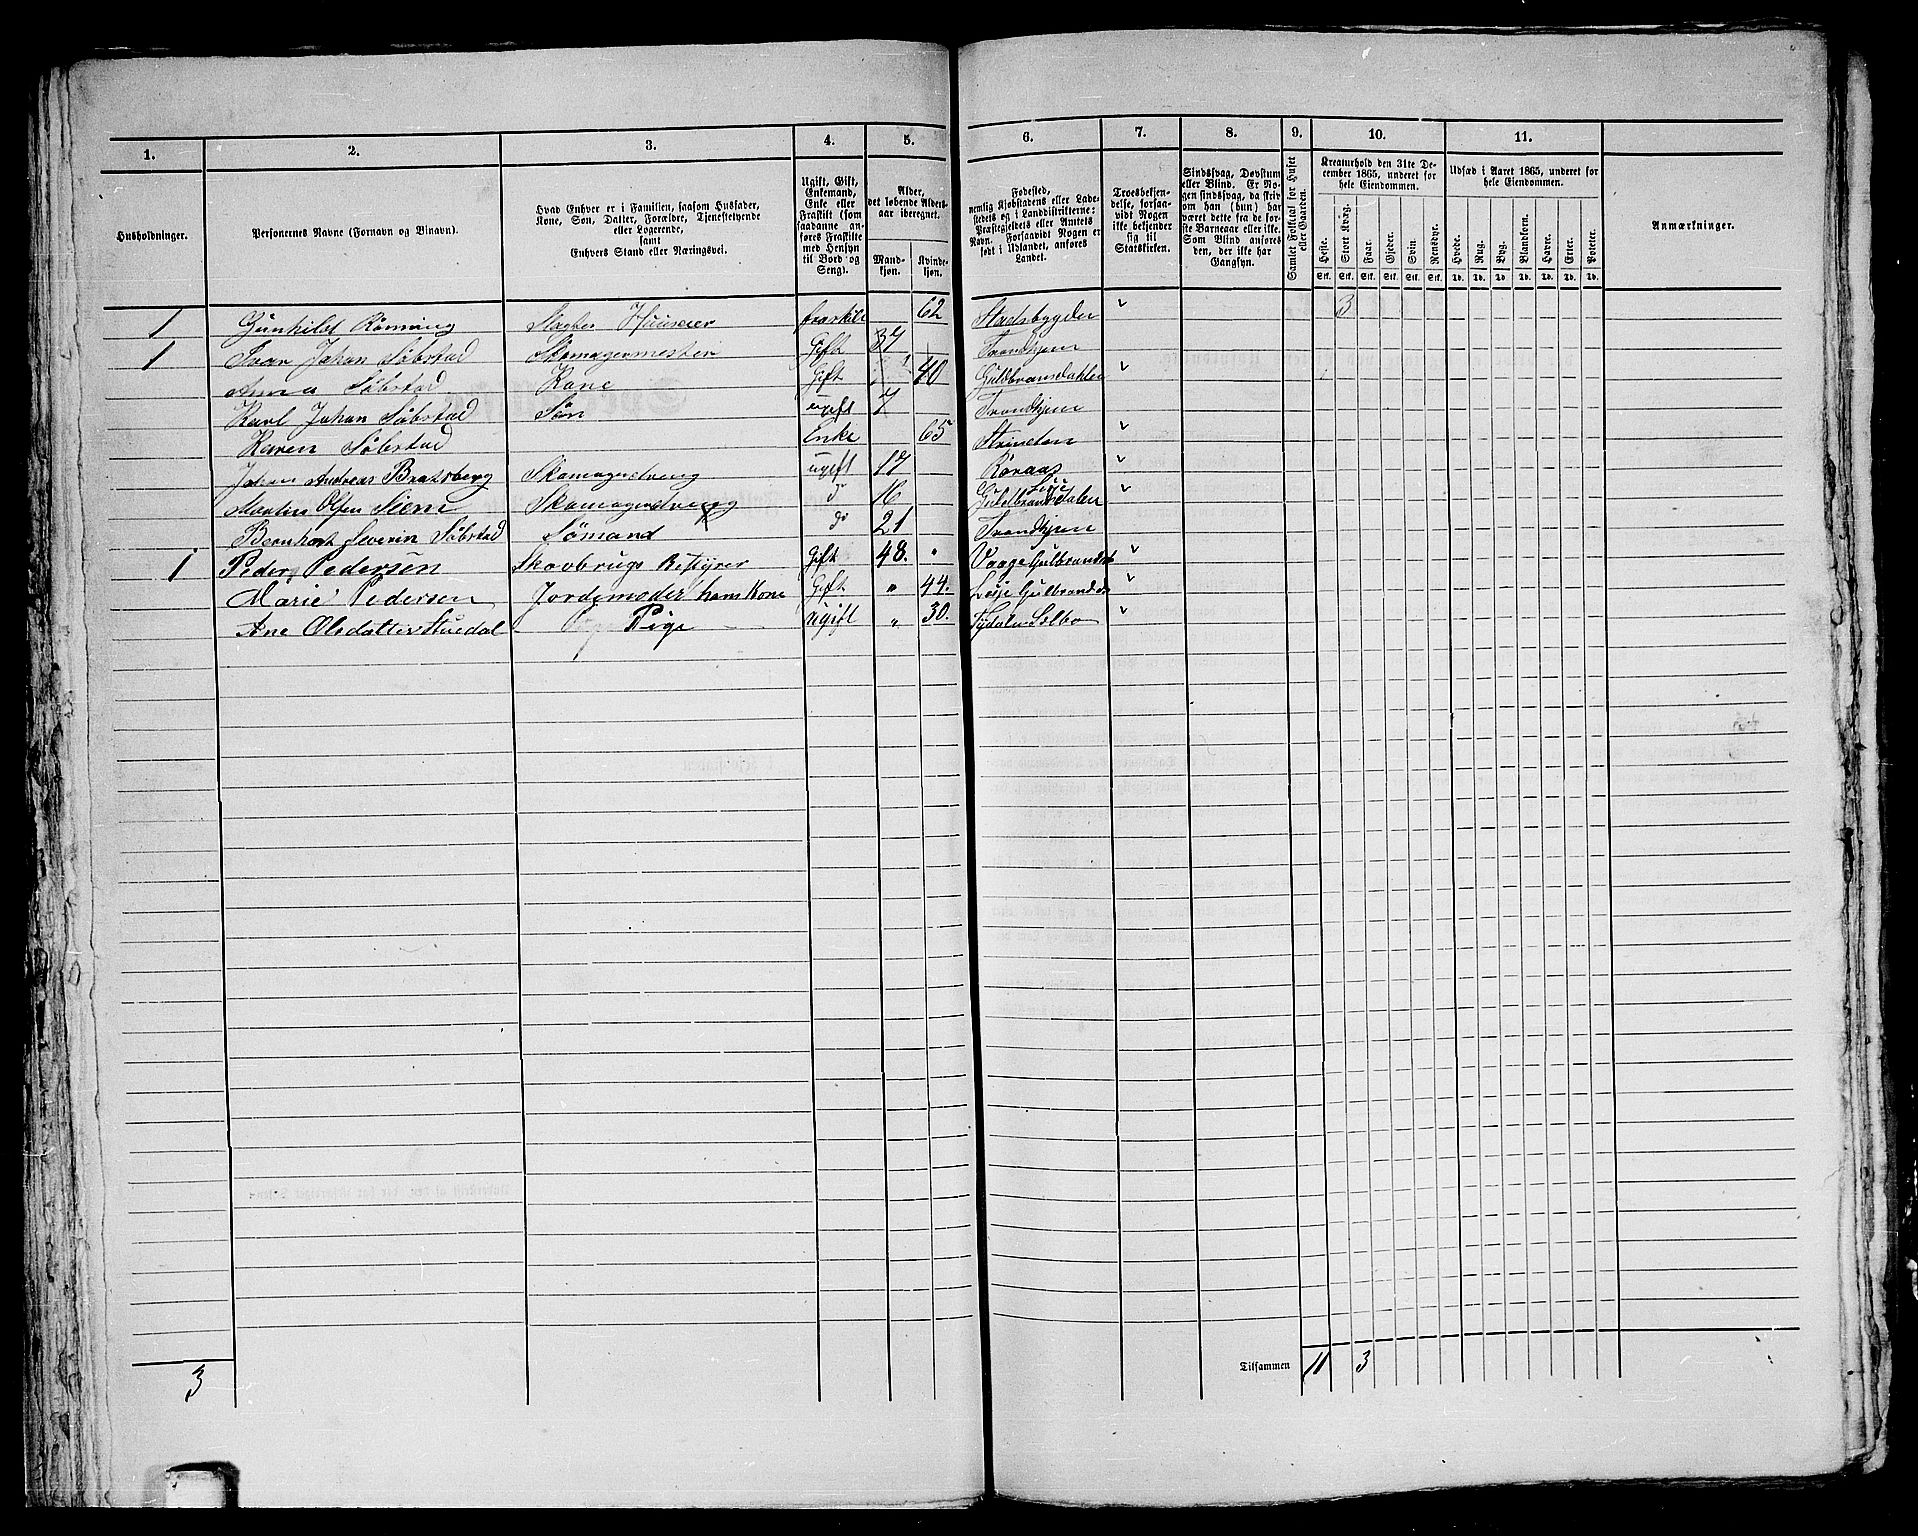 1. 2. 3. 4. 5. 6. 7. 8. 9. 10. 11.
Husholdninger.
Personernes Navne (Fornavn og Binavn).
Hvad Enhver er i Familien, saasom Husfader,
Kone, Søn, Datter, Forældre, Tjenestetyende
eller Logerende,
samt
Enhvers Stand eller Næringsvei.
Ugift, Gift,
Enkemand,
Enke eller
Fraskilt (som
saadanne an-
føres Fraskilte
med Hensyn
til Bord og
Seng).
Alder,
det løbende Alders-
aar iberegnet.
Mand-
kjøn.
Kvinde-
kjøn.
Fødested,
nemlig Kjøbstadens eller Lade-
stedets og i Landdistrikterne:
Præstegjeldets eller Amtets
Navn. Forsaavidt Nogen er
født i Udlandet, anføres
Landet.
Troesbekjen-
delse, forsaa-
vidt Nogen
ikke bekjender
sig til
Statskirken.
Sindssvag, Døvstum
eller Blind. Er No-
gen sindssvag, da skriv
om han (hun) har
været dette fra de før-
ste Barneaar eller ikke.
Som Blind anføres
den, der ikke har
Gangsyn.
Samlet Folketal for Huset
eller Gaarden.
Kreaturhold den 31te De-
cember 1865, underet for
hele Eiendommen.
Heste. Stort Kvæg. Faar. Gjeder. Svin. Rensdyr.
Stk. Stk. Stk. Stk. Stk. Stk.
Udsæd i Aaret 1865, underet for
hele Eiendommen.
Hvede. Rug. Byg. Blandkorn. Havre. Erter. Poteter.
Td. Td. Td. Td. Td. Td. Td.
Anmærkninger.
1 Gunhild Rønning Slagter Huuseier fraskilt 62 Stadsbygden 3
1 Ivar Johan Søbstad Skomagermester Gift 37 Trondhjem
Anna Søbstad Kone Gift 40 Guldbransdahlen
Karl Johan Søbstad Søn ugift 7 Trondhjem
Karen Søbstad Enke 65 Strinden
Johan Andreas Bratsberg Skomagerdreng ugift 17 Røraas
Martin Olsen Siem Skomagerdreng d 16 Lesje Guldbrandsdalen
Bernhart Severin Søbstad Sømand do 21 Trondhjem
1 Peder Pedersen Skovbrugs Bestyrer Gift 48. " Vaage Gulbrandsd
Marie Pedersen Jordemoder hans Kone Gift " 44. Lesje Gulbrandsd
Ane Olsdatter Stuedal Pige Ugift " 30. Tydalen Selbo
3
Tilsammen 11 3